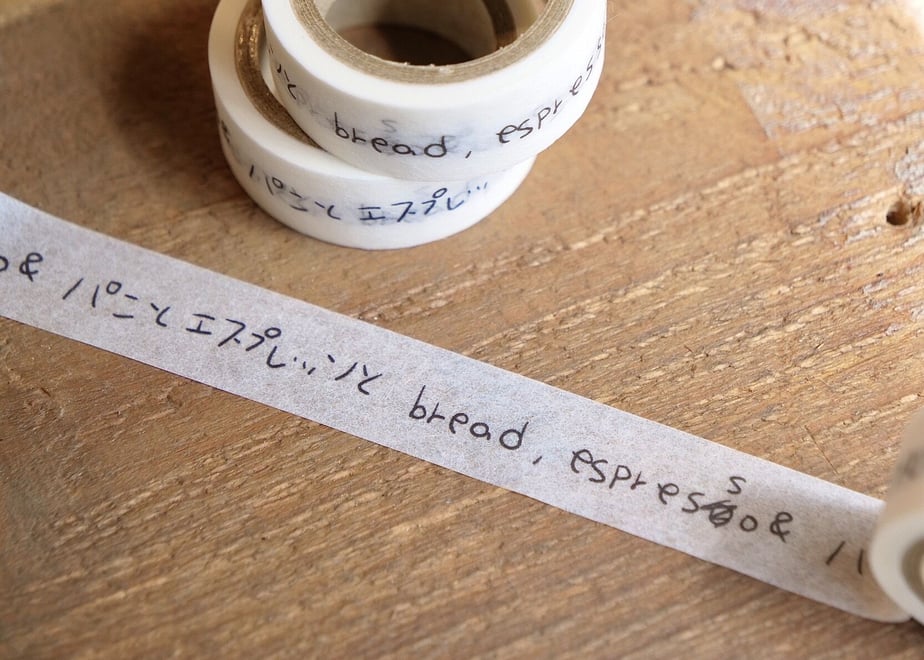 bread, espres
パンとエスプレッ
& パンとエスプレッソと bread, espresso &